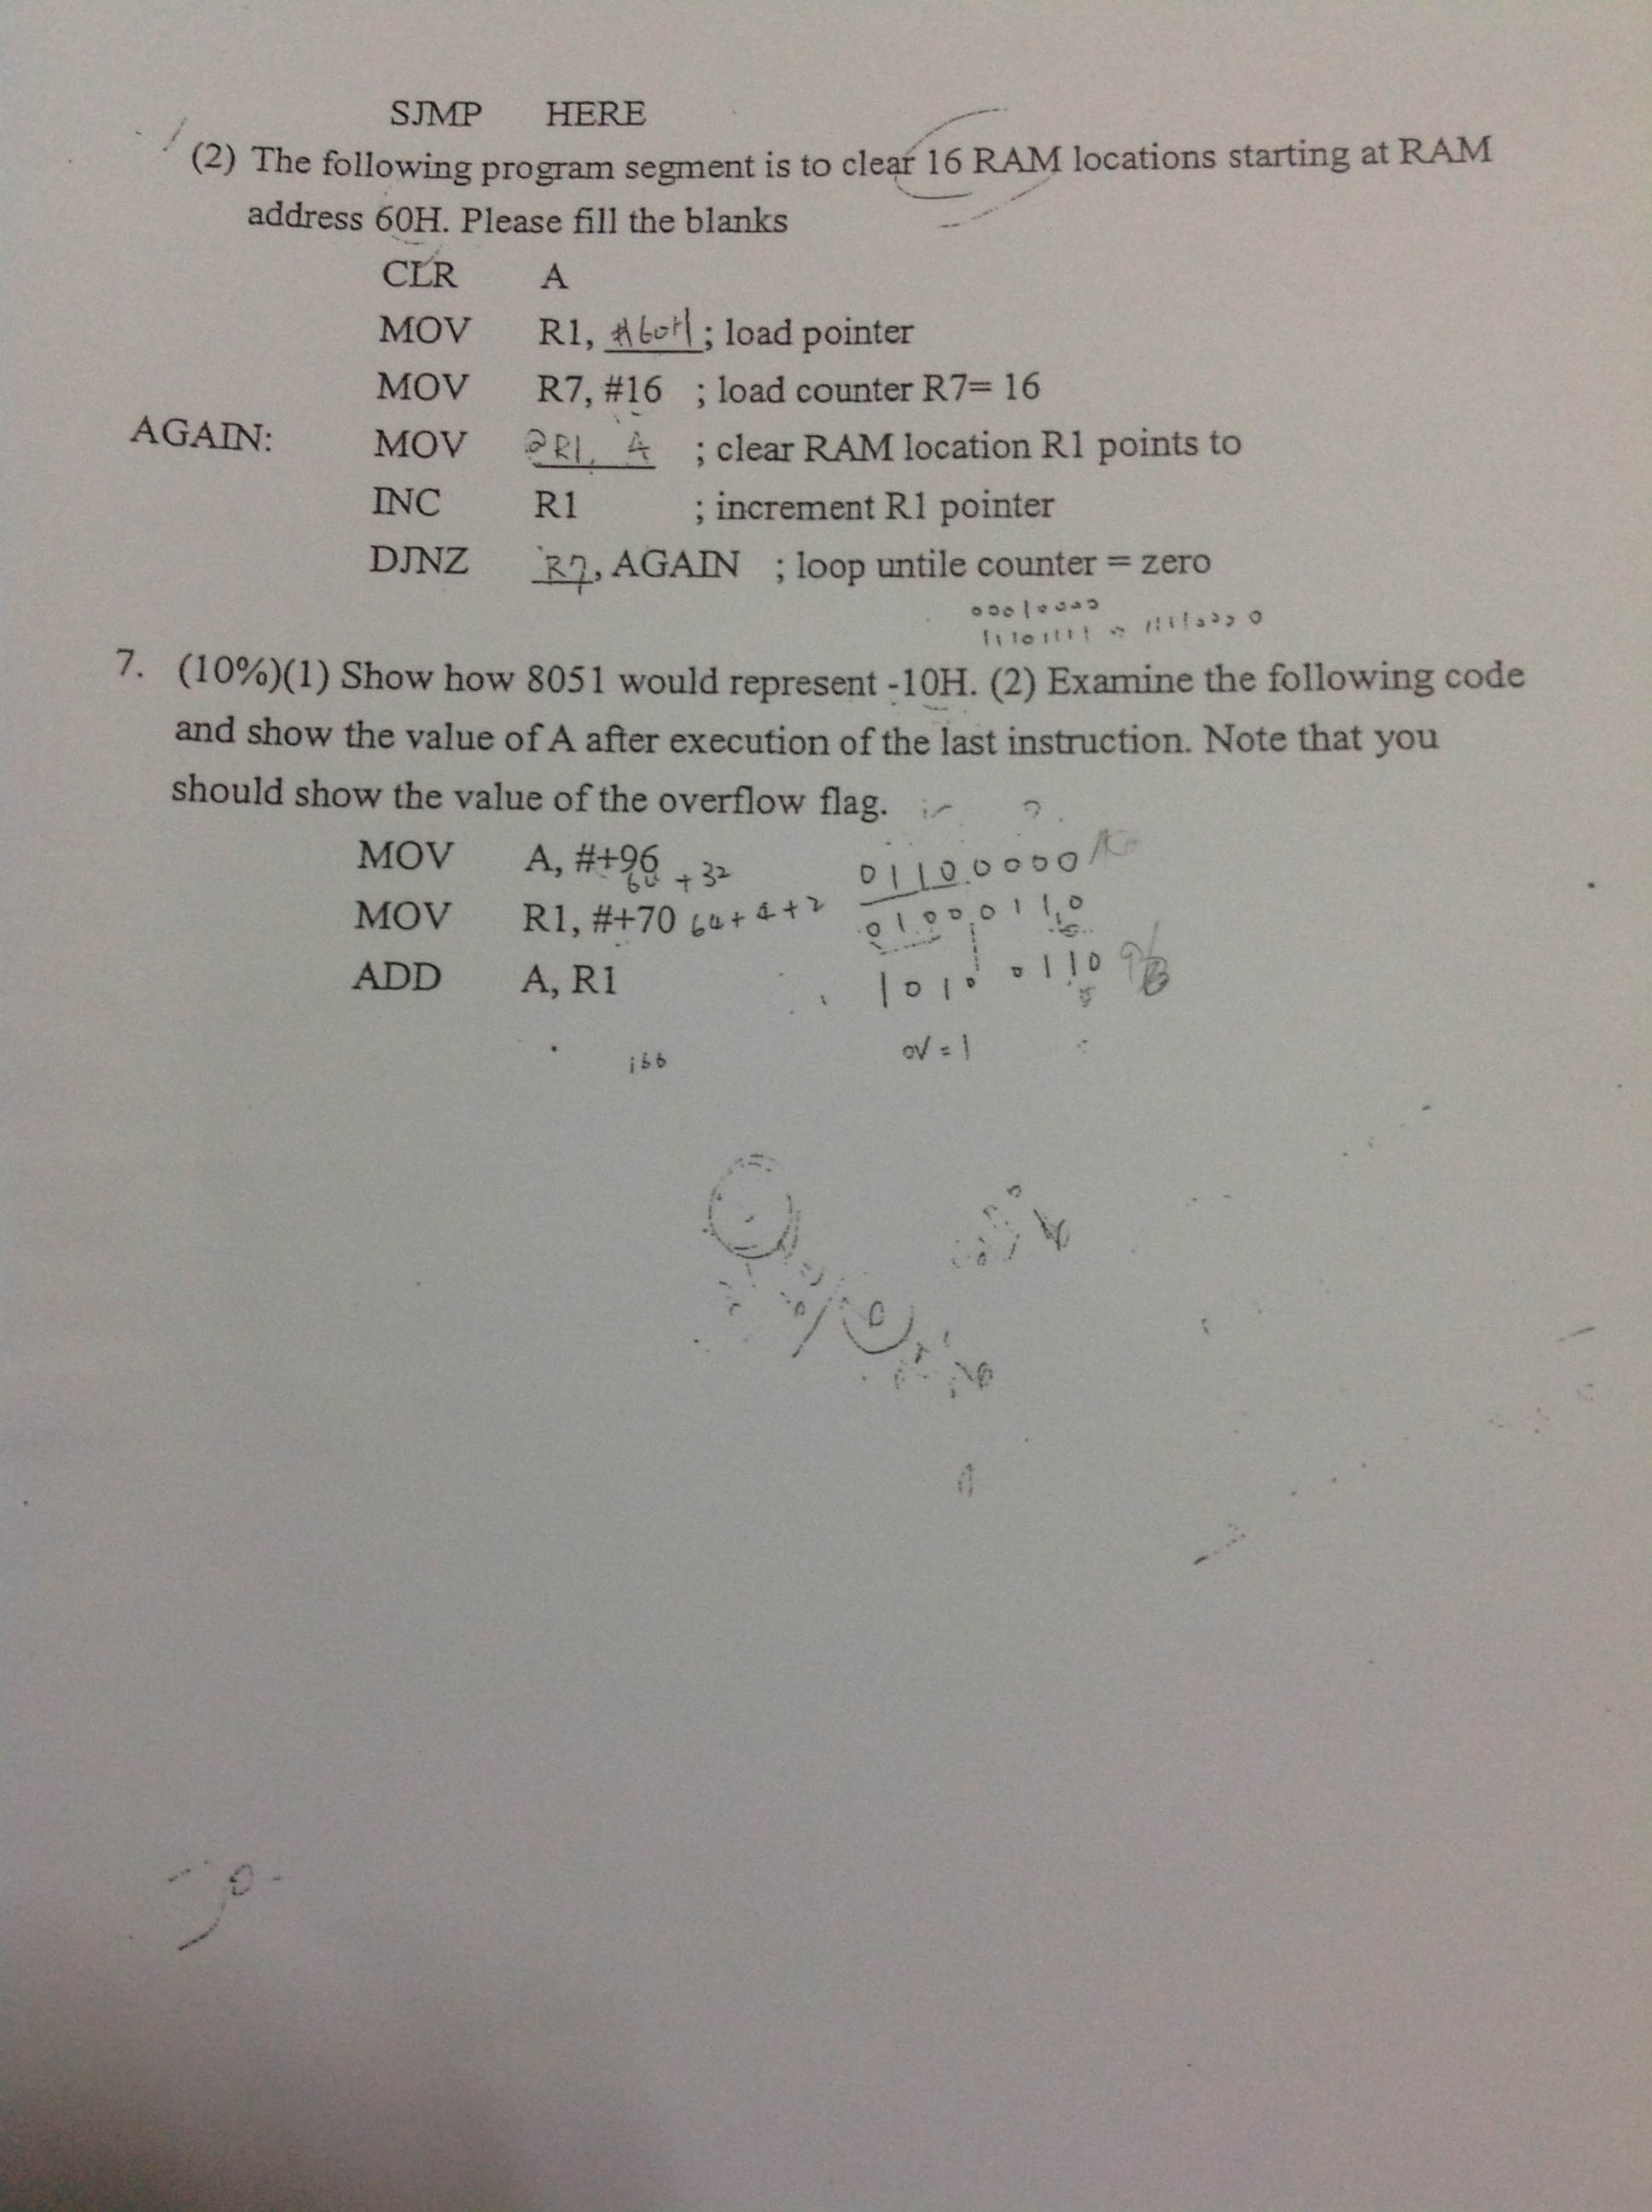 SJMP HERE
(2) The following program segment is to clear 16 RAM locations starting at RAM
address 60H. Please fill the blanks
CLR A
MOV R1, #60H ; load pointer
MOV R7, #16 ; load counter R7= 16
AGAIN: MOV @R1, A ; clear RAM location R1 points to
INC R1 ; increment R1 pointer
DJNZ R7, AGAIN ; loop untile counter = zero
00010000
11101111 = 11110000
7. (10%)(1) Show how 8051 would represent -10H. (2) Examine the following code
and show the value of A after execution of the last instruction. Note that you
should show the value of the overflow flag.
MOV A, #+96 01100000
64 + 32
MOV R1, #+70 64+4+2 01000110
ADD A, R1 10100110
166 OV = 1